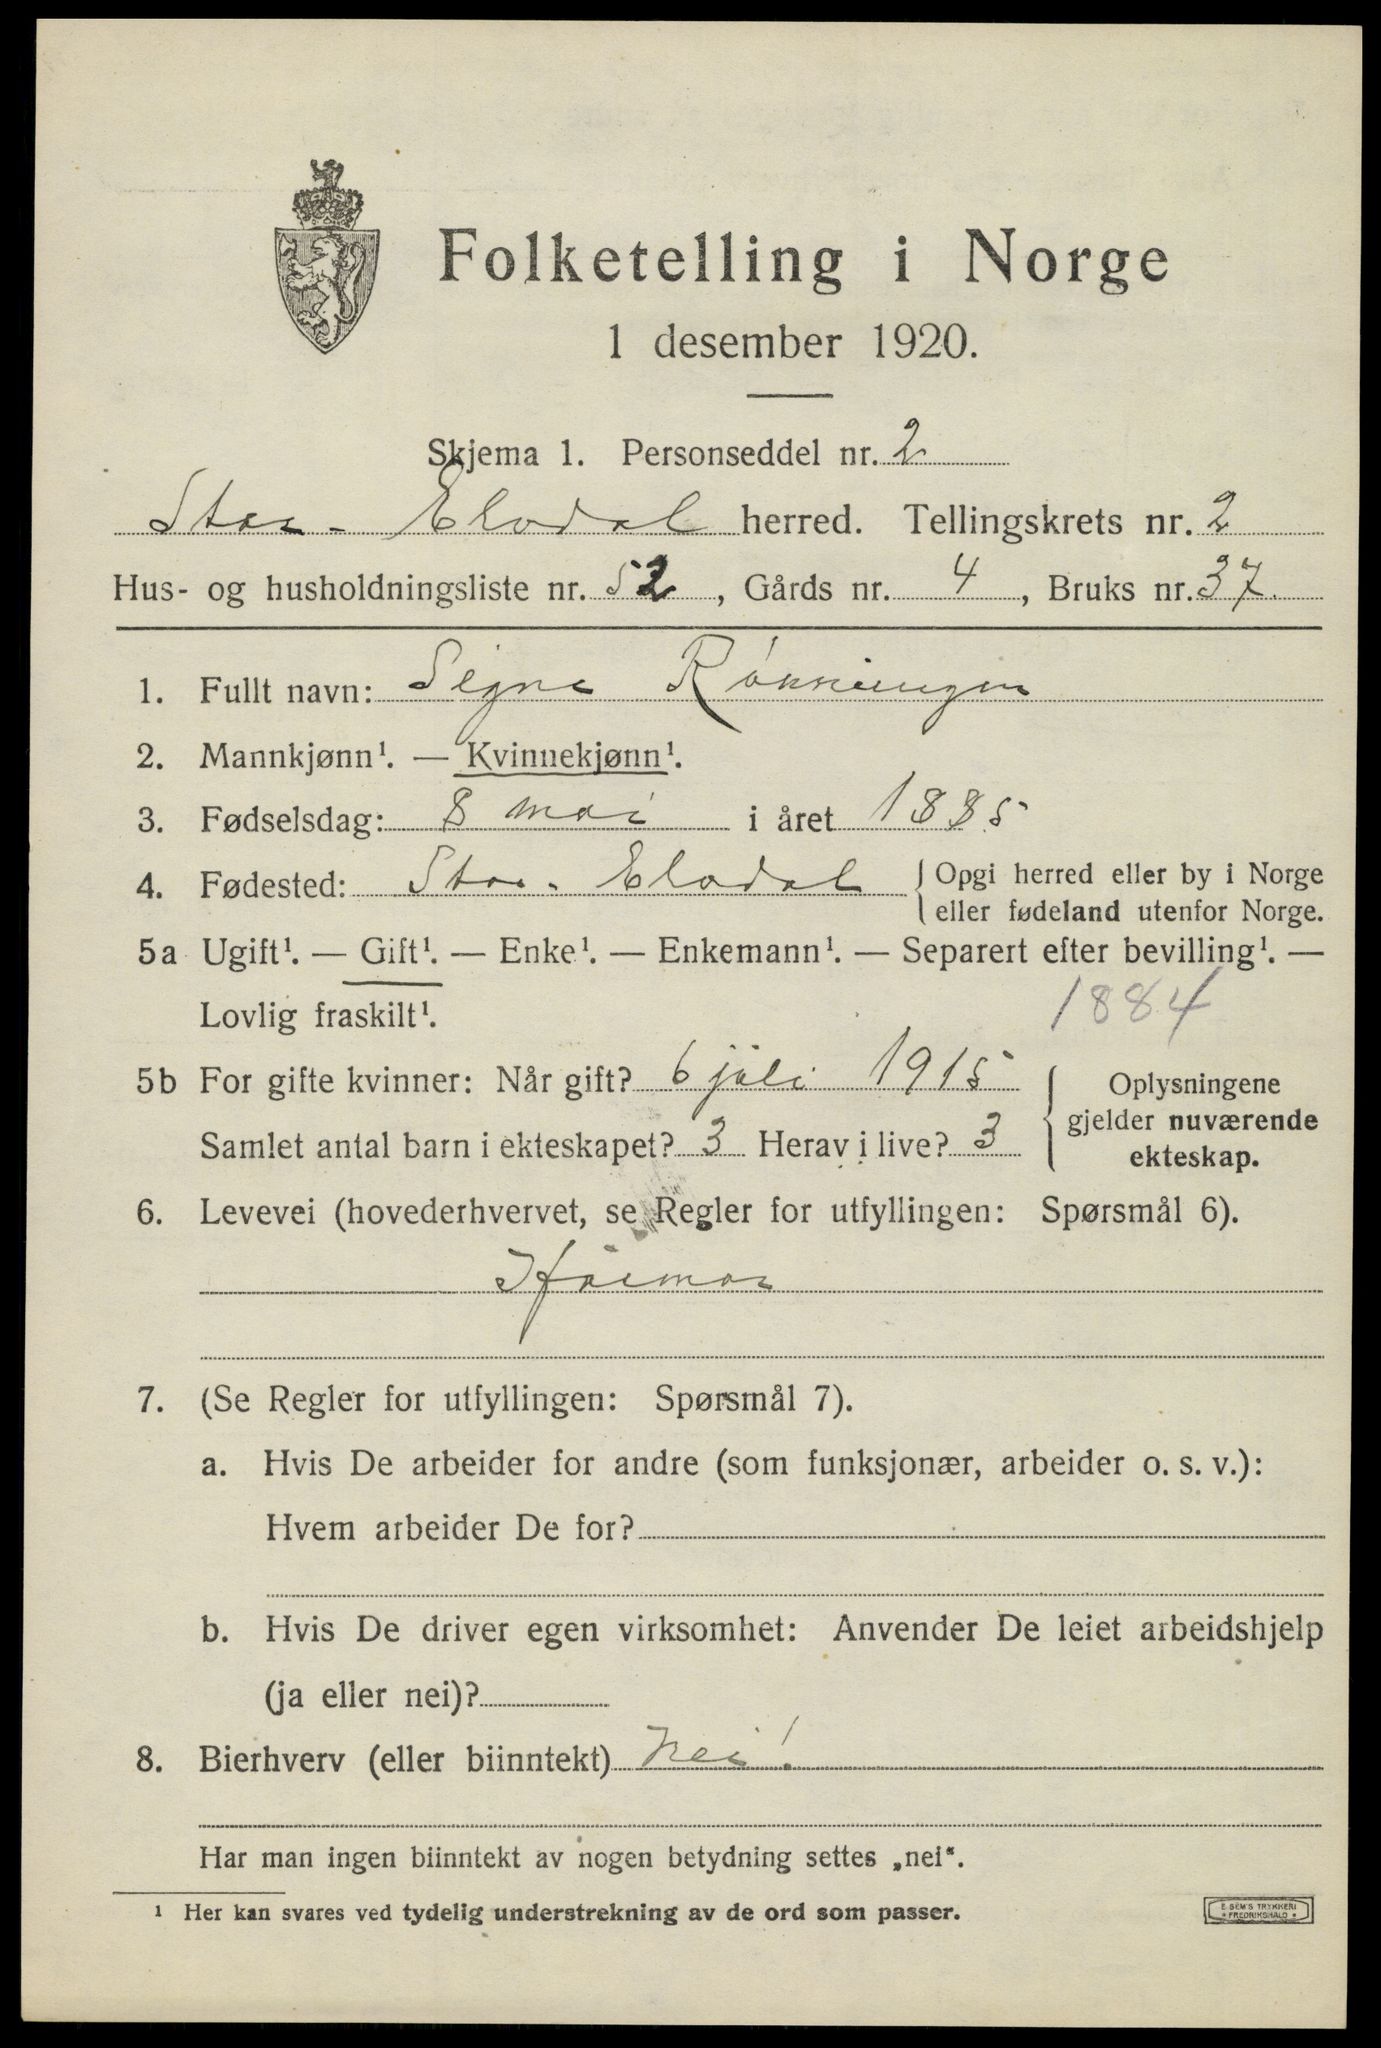 Folketelling i Norge
1 desember 1920.
Skjema 1. Personseddel nr. 2
Stor-Elvdal herred. Tellingskrets nr. 2
Hus- og husholdningsliste nr. 52, Gårds nr. 4, Bruks nr. 37.
1. Fullt navn: Signe Rønningen
2. Mannkjønn¹. — Kvinnekjønn¹.
3. Fødselsdag: 8 mai i året 1885
4. Fødested: Stor-Elvdal {Opgi herred eller by i Norge
eller fødeland utenfor Norge.
5a Ugift¹. — Gift¹. — Enke¹. — Enkemann¹. — Separert efter bevilling¹. —
Lovlig fraskilt¹. 1884
5b For gifte kvinner: Når gift? 6 juli 1915
Samlet antal barn i ekteskapet? 3 Herav i live? 3
{Oplysningene
gjelder nuværende
ekteskap.
6. Levevei (hovederhvervet, se Regler for utfyllingen: Spørsmål 6).
Husmor
7. (Se Regler for utfyllingen: Spørsmål 7).
a. Hvis De arbeider for andre (som funksjonær, arbeider o. s. v.):
Hvem arbeider De for?
b. Hvis De driver egen virksomhet: Anvender De leiet arbeidshjelp
(ja eller nei)?
8. Bierhverv (eller biinntekt) Nei!
Har man ingen biinntekt av nogen betydning settes „nei“.
¹ Her kan svares ved tydelig understrekning av de ord som passer.
E. SEM'S TRYKKERI
* FREDRIKSHALD *